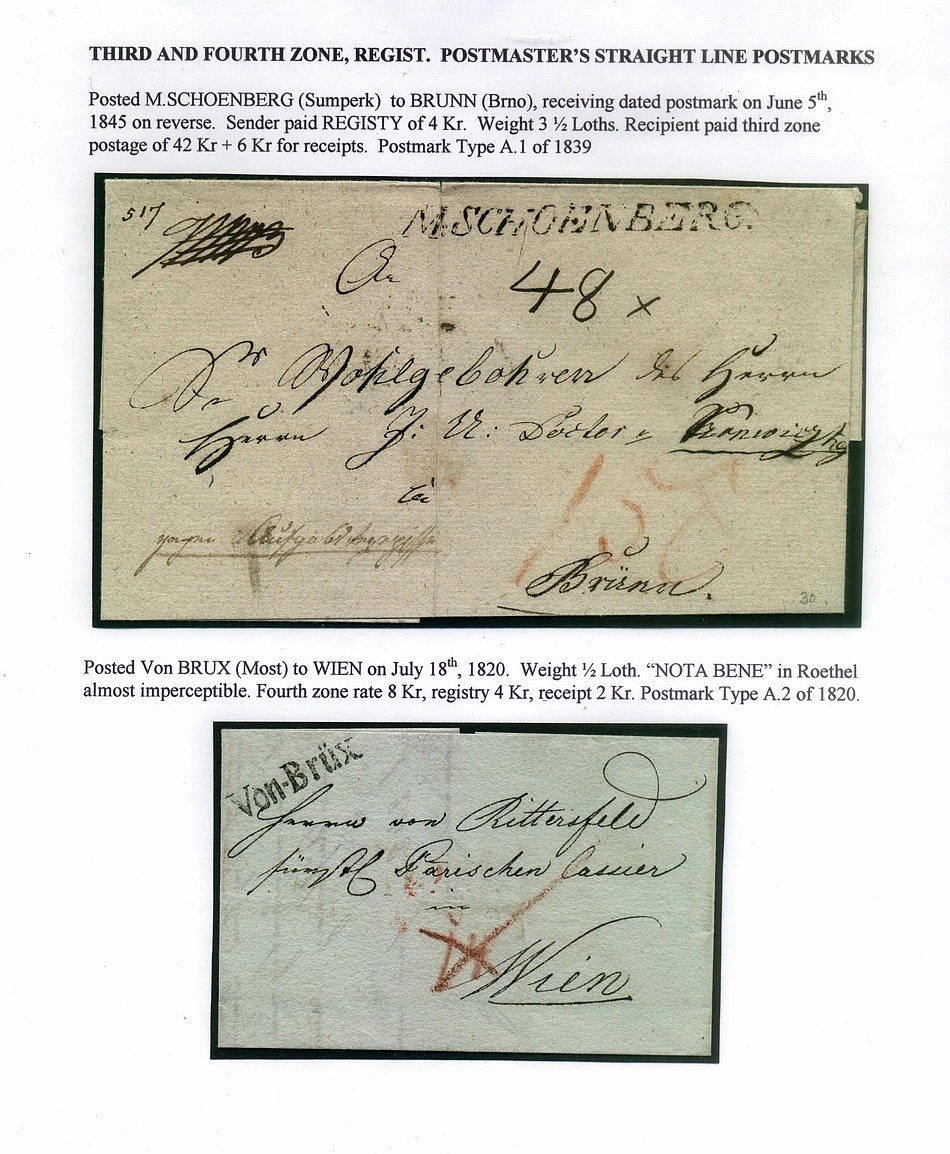 THIRD AND FOURTH ZONE, REGIST. POSTMASTER'S STRAIGHT LINE POSTMARKS
Posted M.SCHOENBERG (Sumperk) to BRUNN (Brno), receiving dated postmark on June 5th,
1845 on reverse. Sender paid REGISTY of 4 Kr. Weight 3 ½ Loths. Recipient paid third zone
postage of 42 Kr + 6 Kr for receipts. Postmark Type A.1 of 1839
517
M.SCHOENBERG.
An
48 x
Sr Wohlgebohren des Herrn
Herrn J: U: Doctor
Brünn.
30.
Posted Von BRUX (Most) to WIEN on July 18th, 1820. Weight ½ Loth. “NOTA BENE” in Roethel
almost imperceptible. Fourth zone rate 8 Kr, registry 4 Kr, receipt 2 Kr. Postmark Type A.2 of 1820.
Von-Brüx
Herrn von Rittersfeld
Cassier
in
Wien